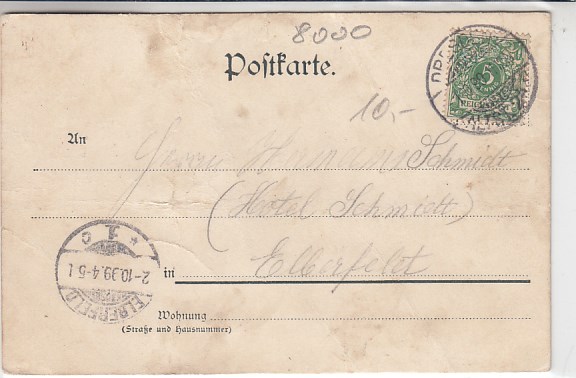 8000
Postkarte.
10,-
An
Herrn Hermann Schmidt
(Hotel Schmidt)
in Elberfeld
Wohnung
(Straße und Hausnummer)
5
REICHSPOST
* 1 c
2-10.99.4-5 N.
ELBERFELD